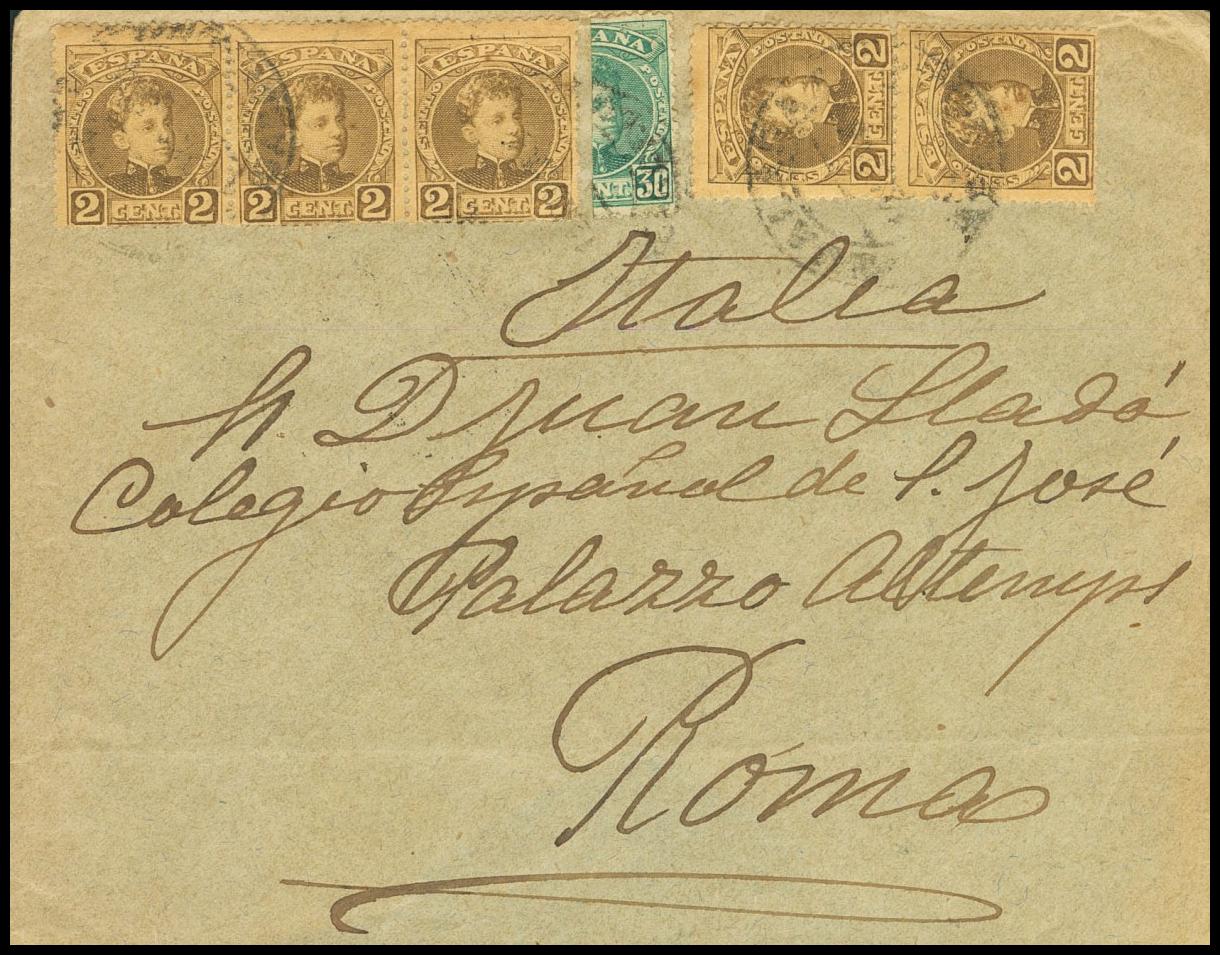 ESPAÑA ESPAÑA ESPAÑA ANA ESPAÑA ESPAÑA
SELLO POSTAL SELLO POSTAL SELLO POSTAL POSTAL SELLO POSTAL SELLO POSTAL
2 CENT. 2 2 CENT. 2 2 CENT. 2 NT. 30 2 CENT. 2 2 CENT. 2
Italia
D Juan Lladó
Colegio Español de S. José
Palazzo Altemps
Roma